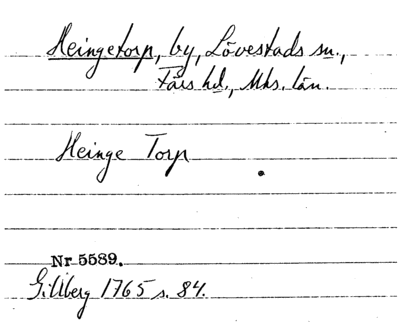 Heingetorp, by, Lövestads sn.,
Färs hd., Mhs. län.
Heinge Torp
Nr 5589.
Gillberg 1765 s. 84.